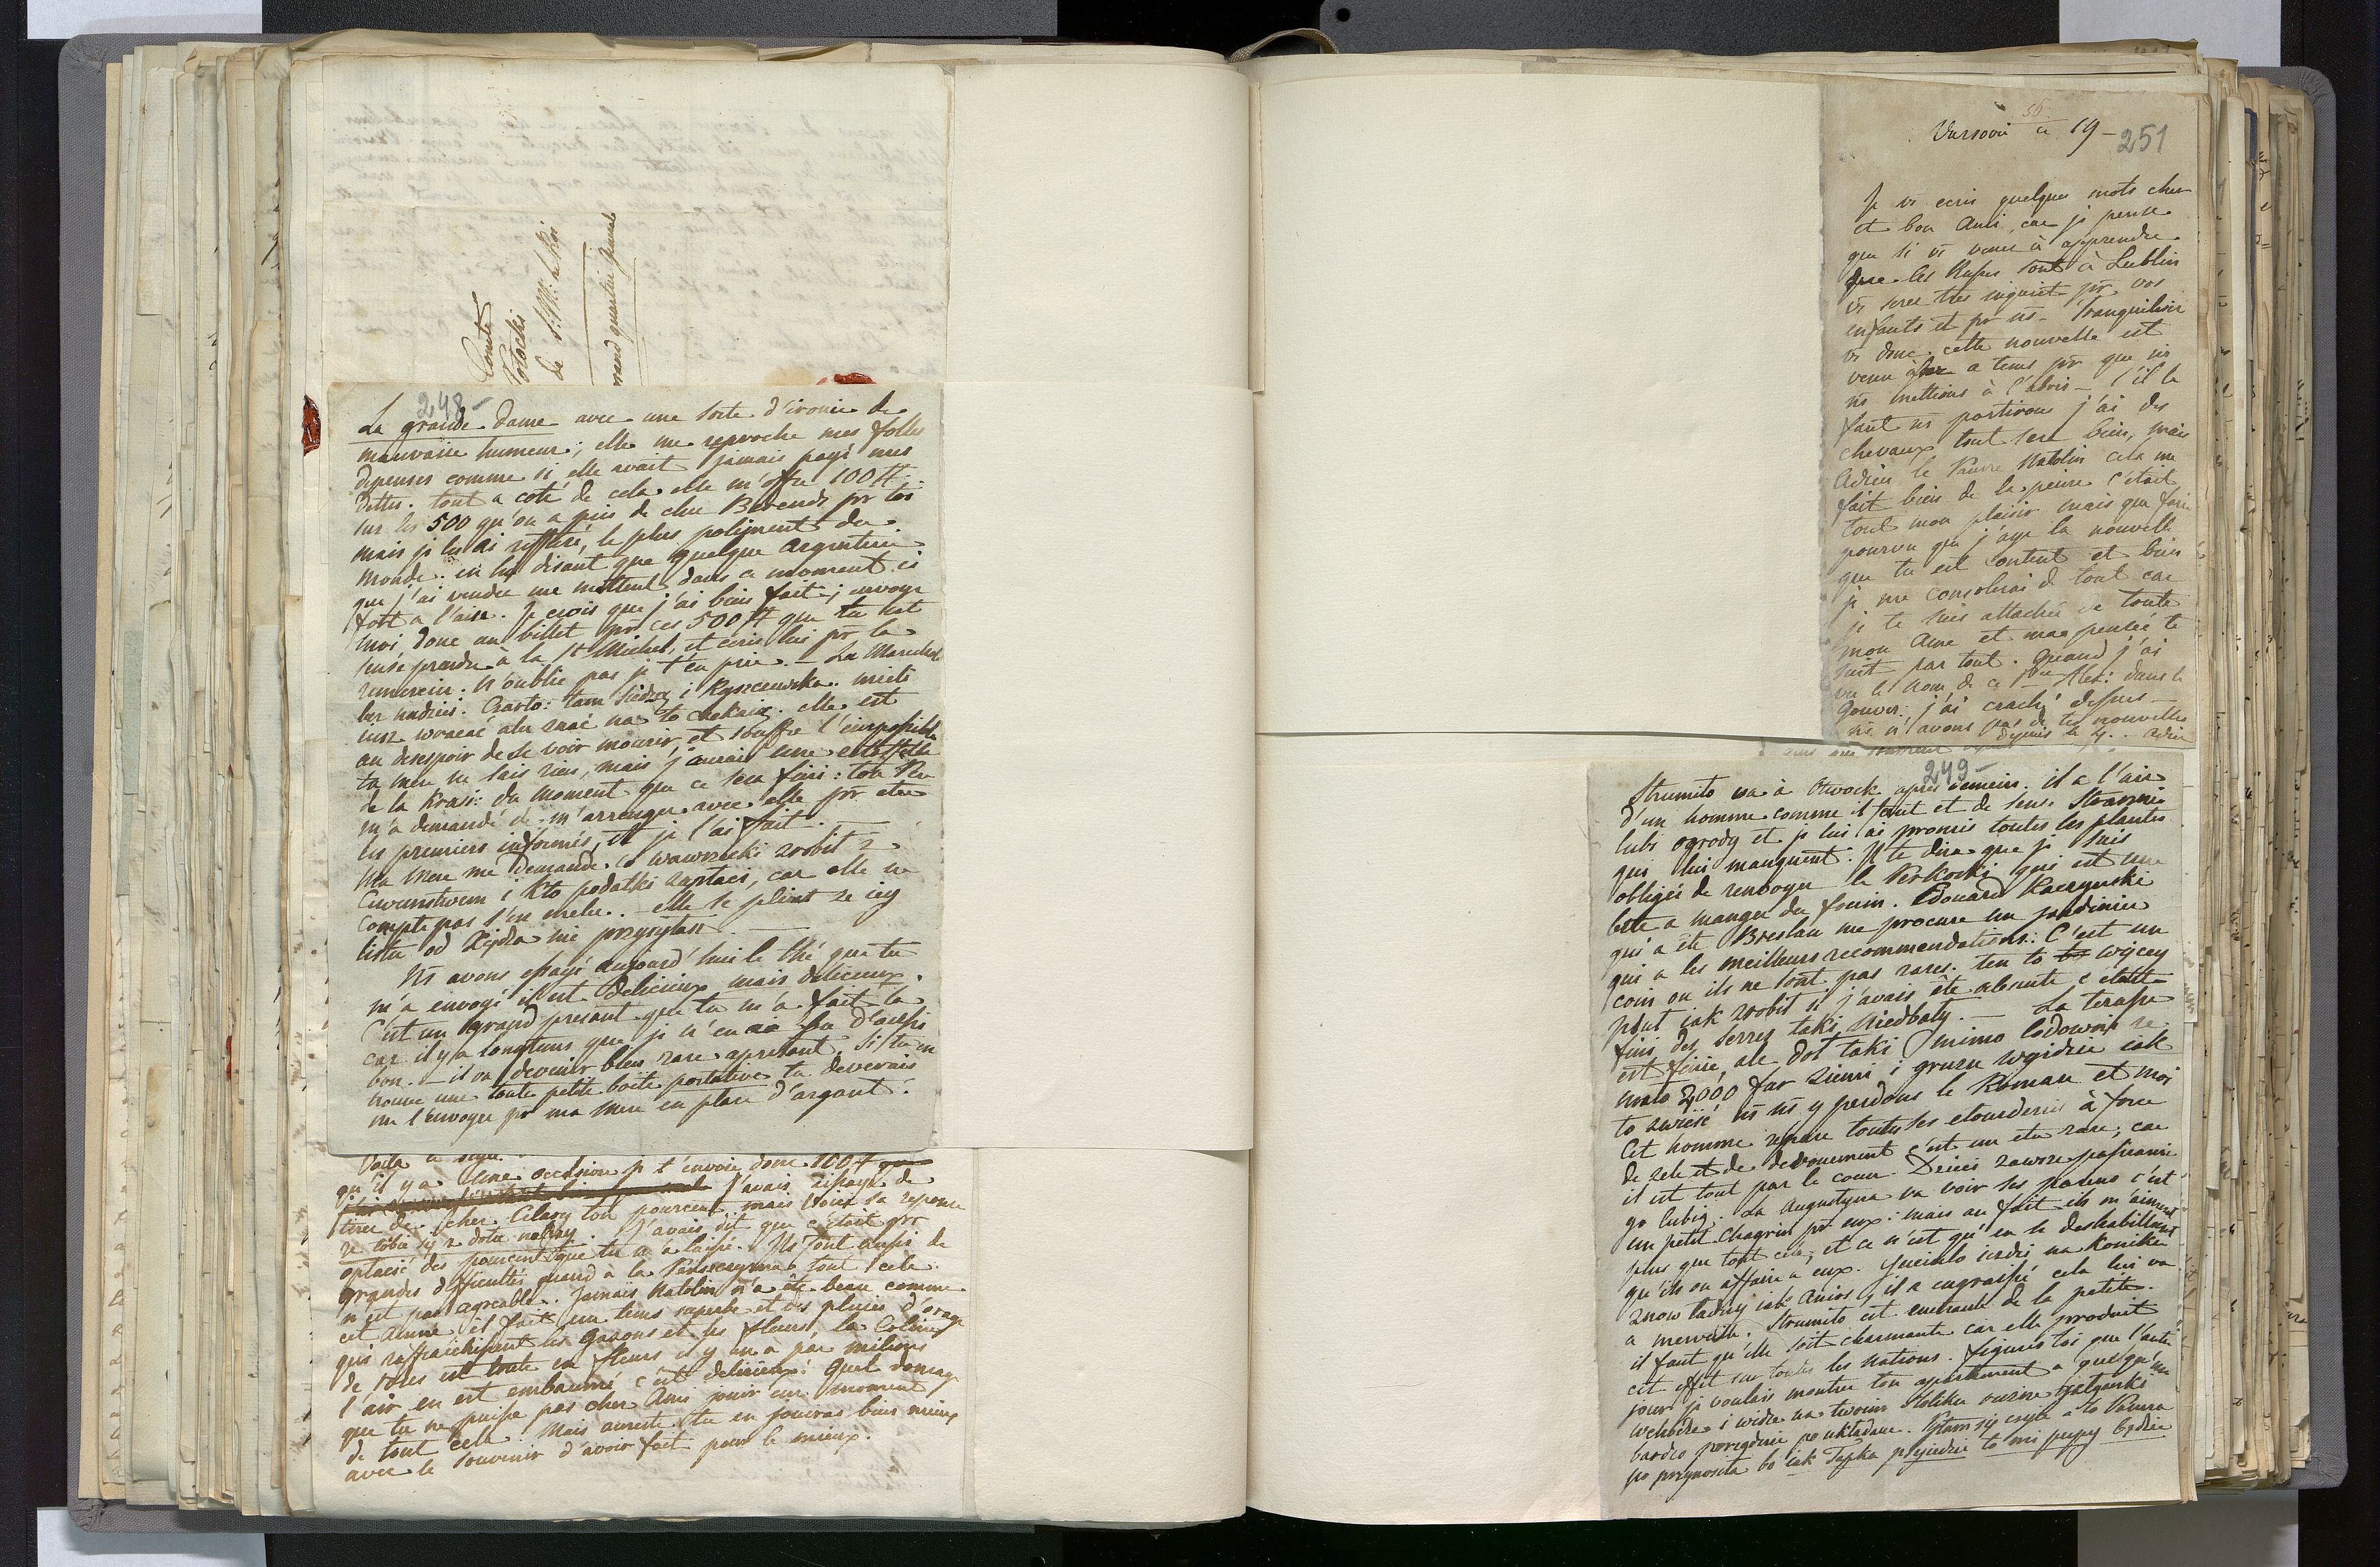 Comte
Potocki
de S. M. le Roi
grand quartier général
248-
La grande Dame avec une sorte d'ironie de
mauvaise humeur; elle me reproche mes folles
depenses comme si elle avait jamais payé mes
dettes. tout a coté de cela elle m'offre 100 #
sur les 500 qu'on a pris de chez Berends pr toi
mais je lui ai refusé, le plus poliment du
monde. en lui disant que quelque argenterie
que j'ai vendue me mettent dans ce moment ci
fort a l'aise. Je crois que j'ai bien fait; envoye
moi donc un billet pr ces 500 # que tu
prendre à la St Michel, et ecris lui pr la
remercier. N'oublie pas je t'en prie. — La Marechale
bez nadziei. Czarto: tam siedzą i Ryszczewska. mieli
iuż wracać ale na to czekaią. elle est
au desespoir de se voir mourir, et souffre l'impossible
ta mere ne sais rien, mais j'aurais une estafette
de la Krasi: du moment que ce sera fini: ton Pere
m'a demandé de m'arranger avec elle pr etre
les premiers informés, et je l'ai fait. —
Ma Mere me demande. Co Wawrzecki zrobił z
i kto podatki zapłaci, car elle ne
compte pas s'en meler. — elle se plaint że iey
listu od Xiędza nie przysyłasz. —
Ns avons essayé aujourd'hui le thé que tu
m'a envoyé il est Delicieux, mais delicieux.
C'est un grand present que tu m'a fait la
car il y a longtems que je n'en ai bu d'aussi
bon. — il va devenir bien rare apresent. Si tu en
trouve une toute petite boite portative tu deverais
me l'envoyer pr ma mere en place d'argent.
Voila
qu'il y a Une occasion je t'envoie donc 100 #
J'avais essayé de
tirer de cher Cilary ton pourcent mais voici sa reponse
że tobie
J'avais dit que c'était pr
opłacić des pourcents que tu a laissé. Ns font aussi de
grandes difficultés quand à la tout cela
n'est pas agreable. Jamais Natolin n'a été beau comme
cet année il fait un tems superbe et des pluies d'orage
qui raffraichissent les Gazons et les fleurs, la Coline
de roses est toute en fleurs il y en a par milions
l'air en est embaumé c'est delicieux! Quel domage
que tu ne puisse pas cher Ami jouir un moment
de tout cela. Mais aureste tu en jouiras bien mieux
avec le souvenir d'avoir fait pour le mieux.
56.
Varsovie ce 19 - 251
Je vs ecris quelques mots cher
et bon Ami, car je pense
que si vs venez à apprendre
que les Russes sont à Lublin
vs serez très inquiet pr vos
enfants et pr ns - Tranquilisez
vs donc. cette nouvelle est
venu a tems pr que ns
ns mettions à l'abri - s'il le
faut ns partirons j'ai des
chevaux tout sera bien, mais
Adieu le Pauvre Natolin cela me
fait bien de la peine c'était
tout mon plaisir mais que faire
pourvu que j'aye la nouvelle
que tu est content et bien
je me consolerai de tout car
je te suis attachée de toute
mon Ame et ma pensée te
suit par tout. Quand j'ai
vu le nom de ce Alex: dans le
Gouver: j'ai craché dessus —
ns n'avons pas de tes nouvelles
depuis le 4. — Adieu
249-
Strumiło va à Otwock après demain. il a l'air
d'un homme comme il faut et de sens. Strasznie
lubi ogrody et je lui ai promis toutes les plantes
qui lui manquent. Il te dira que je suis
obligée de renvoyer le Perkocki qui est une
bete a manger du foin. Edouard Raczynski
qui a été Breslau me procure un jardinier
qui a les meilleurs recommendations. C'est un
coin ou ils ne sont pas rares. ten to więcey
psut iak zrobił si j'avais été absente c'etait
fini des serres taki Niedbały. — La terasse
est finie, ale Dot taki mimo że
mało 2,000 fur ziemi i gruzu wyidzie iak
to zwieść ns ns y perdons le Roman et moi
Cet homme repare toutes ses etourderies à force
de zele et de devouement c'est un etre rare; car
il est tout par le coeur. Dzieci zawsze passianie
go lubią. La Augustyna va voir ses parens c'est
un petit chagrin pr eux: mais au fait ils m'aiment
plus que tout cela; et ce n'est qu'en se deshabillant
qu'ils on affaire a eux. Gucinko iezdzi na Koniku
znow ładny iak Anioł, il a engraissé cela lui va
a merveille. Strumiło est enchanté de la petite.
il faut qu'elle soit charmante car elle produit
cet effet sur toutes les Nations. figures toi que l'autre
jour je voulais montrer ton apartement a quelqu'un
wchodzę i widzę na twoim stoliku
bardzo porządnie poukładane. Pytam się czyie a to Panna
po przyniosła bo iak Papka przyiedzie to mi będzie